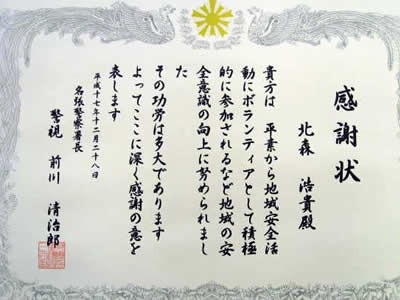 感謝状
北森 浩貴殿
貴方は 平業から地域安全活
動にボランティアとして積極
的に参加されるなど地域の安
全意識の向上に努められまし
た
その功労は多大であります
よってここに深く感謝の意を
表します
平成十七年十二月二十八日
名張警察署長
警視 前川 清治郎